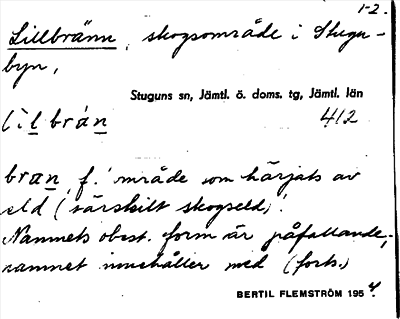 1-2.
Lillbränn, skogsområde i Stugu-
byn,
Stuguns sn, Jämtl. ö. doms. tg, Jämtl. län
lìlbrán 412
bran, f. 'område som härjats av
eld (särskilt skogseld)'.
Namnets obest. form är påfallande;
namnet innehåller med (forts.)
BERTIL FLEMSTRÖM 1954.